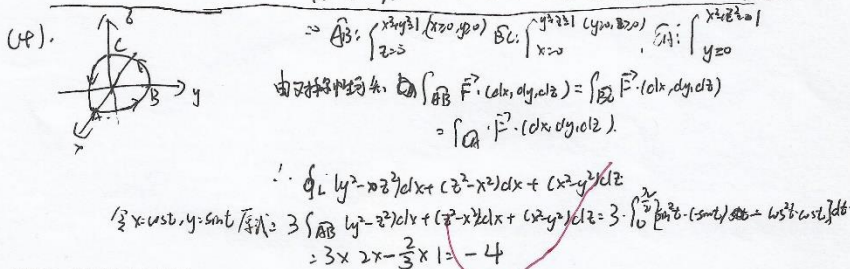 (4).
z
C
B
A
y
x
⇒ AB: { x²+y²=1 (x≥0, y≥0) z=0 BC: { y²+z²=1 (y≥0, z≥0) x=0 , CA: { x²+z²=1 y=0
由对称性可知, ∫AB F·(dx,dy,dz) = ∫BC F·(dx,dy,dz)
= ∫CA F·(dx,dy,dz).
∴ ∮L (y²-z²)dx+(z²-x²)dx+(x²-y²)dz
令x=cost, y=sint 原式= 3∫AB (y²-z²)dx+(z²-x²)dx+(x²-y²)dz = 3·∫0 π/2 [sin²t·(-sint) - cos²t·cost]dt
= 3×2×-2/3×1 = -4